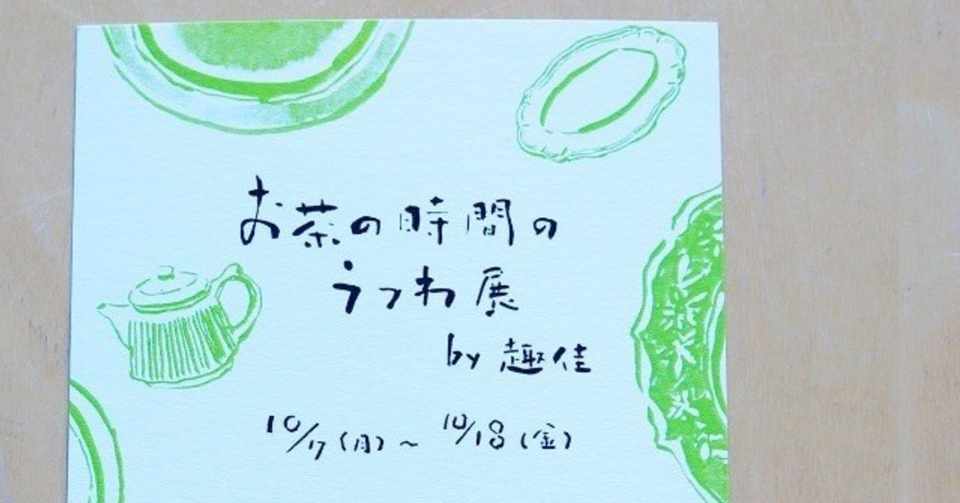 お茶の時間の
うつわ展
by 趣佳
10/7(月)~10/18(金)